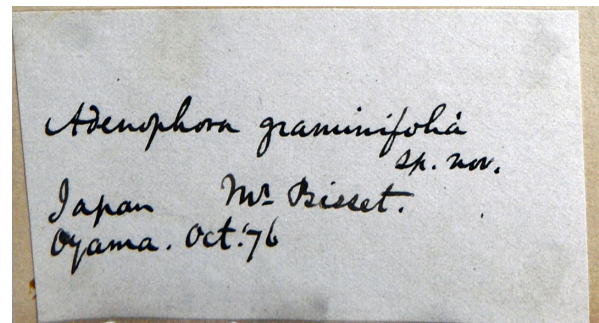 Adenophora graminifolia
sp. nov.
Japan Mr. Bisset.
Oyama. Oct. '76